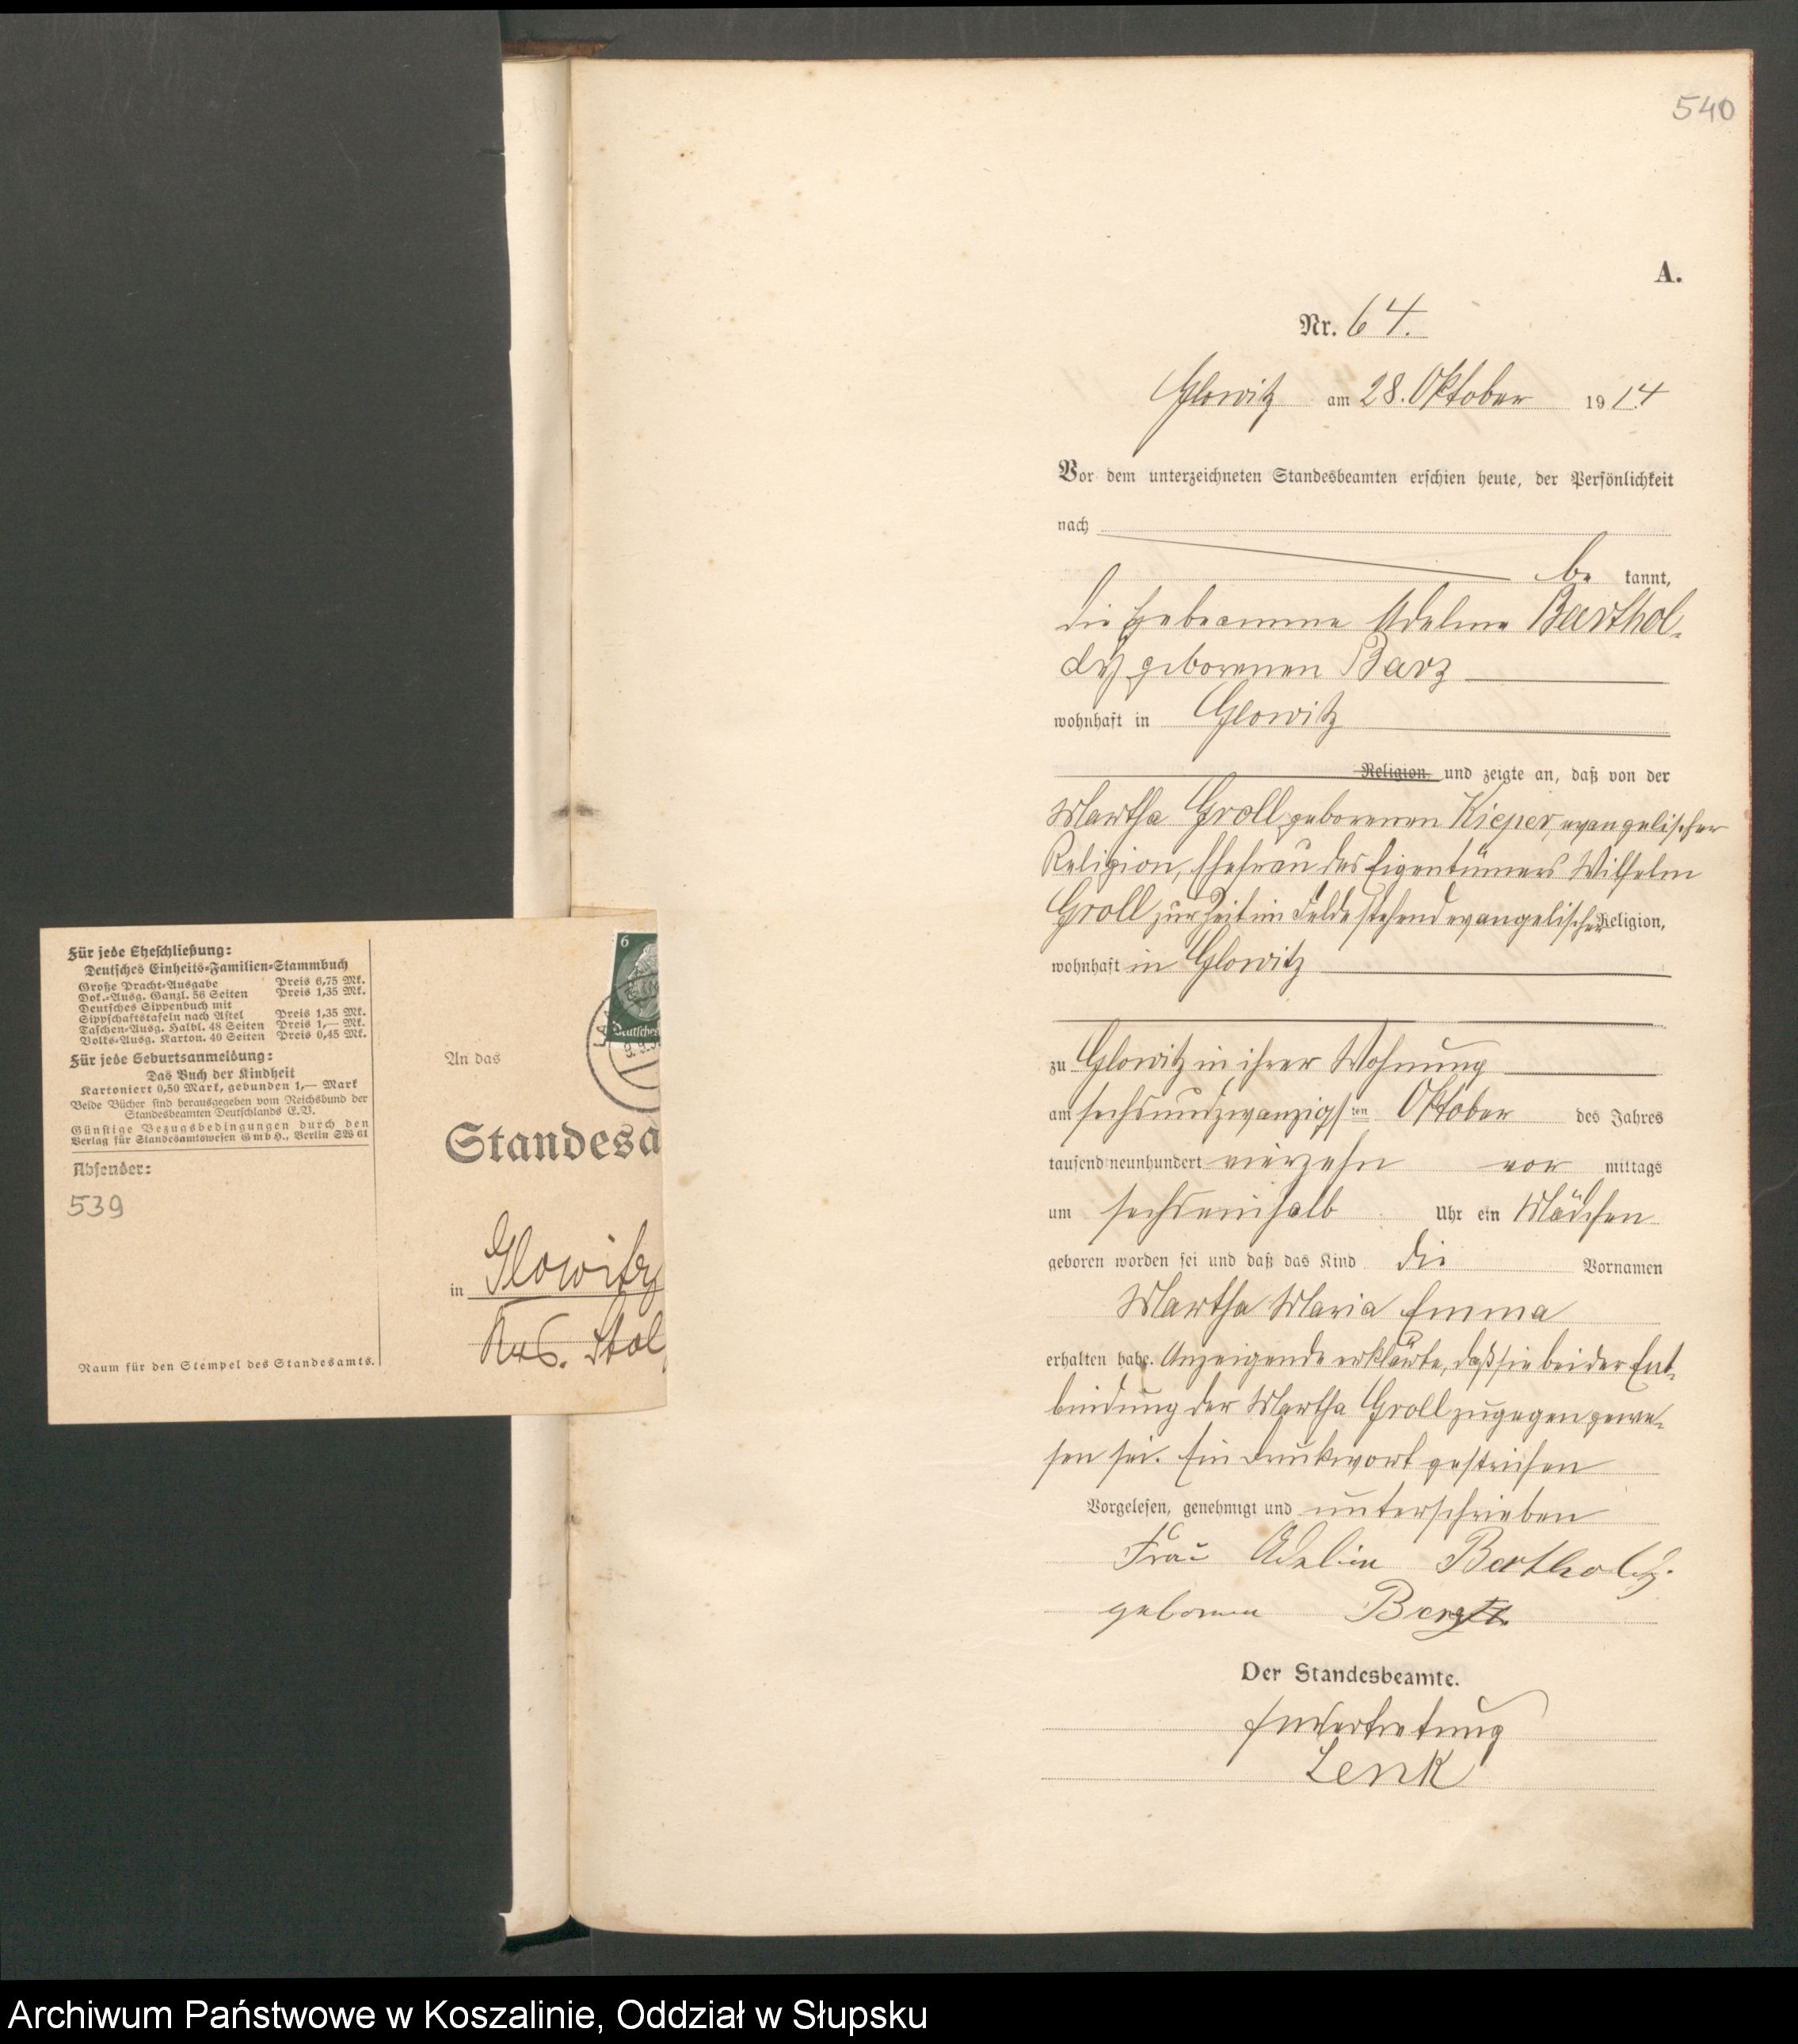 540
A.
Nr. 64.
Glowitz am 28. Oktober 1914
Vor dem unterzeichneten Standesbeamten erschien heute, der Persönlichkeit
nach
be kannt,
die Hebeamme Adeline Barthol-
dy geborenen Barz
wohnhaft in Glowitz
Religion und zeigte an, daß von der
Martha Groll geborenen Kieper, evangelischer
Religion, Ehefrau des Eigentümers Wilhelm
Groll zur Zeit im Felde stehend evangelischer Religion,
wohnhaft in Glowitz
zu Glowitz in ihrer Wohnung
am sechsundzwanzigsten Oktober des Jahres
tausend neunhundert vierzehn vor mittags
um sechseinhalb Uhr ein Mädchen
geboren worden sei und daß das Kind die Vornamen
Martha Maria Emma
erhalten habe. Anzeigende erklärte, daß sie bei der Ent-
bindung der Martha Groll zugegen gewe-
sen sei. Ein Druckwort gestrichen
Vorgelesen, genehmigt und unterschrieben
Frau Adeline Bartholdy.
geborene
Der Standesbeamte.
In Vertretung
Lenk
Für jede Eheschließung:
Deutsches Einheits-Familien-Stammbuch
Große Pracht-Ausgabe Preis 6,75 Mk.
Dok.-Ausg. Ganzl. 56 Seiten Preis 1,35 Mk.
Deutsches Sippenbuch mit
Sippschaftstafeln nach Astel Preis 1,35 Mk.
Taschen-Ausg. Halbl. 48 Seiten Preis 1,— Mk.
Volks-Ausg. Karton. 40 Seiten Preis 0,45 Mk.
Für jede Geburtsanmeldung:
Das Buch der Kindheit
Kartoniert 0,50 Mark, gebunden 1,— Mark
Beide Bücher sind herausgegeben vom Reichsbund der
Standesbeamten Deutschlands E.V.
Günstige Bezugsbedingungen durch den
Verlag für Standesamtswesen GmbH., Berlin SW 61
Absender:
539
Raum für den Stempel des Standesamts.
6
Deutsches
An das
Standesa
in Glowitz
Stol
Archiwum Państwowe w Koszalinie, Oddział w Słupsku